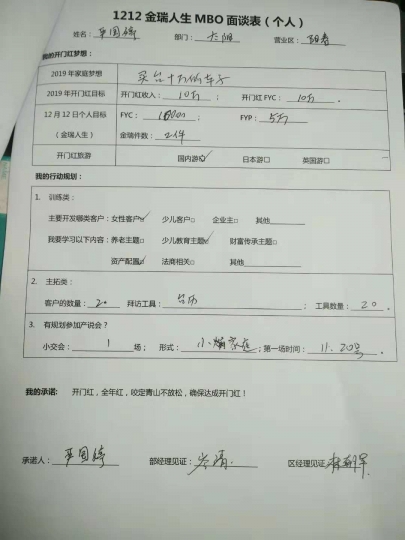 1212 金瑞人生 MBO 面谈表（个人）
姓名： 部门： 营业区：
我的开门红梦想：
2019 年家庭梦想 买台十万的车子
2019 年开门红目标 开门红收入： 10万 ； 开门红 FYC： 10万 。
12 月 12 日个人目标 FYC： FYP： 5万
（金瑞人生） 金瑞件数： 件
开门红旅游 国内游☑ 日本游□ 英国游□
我的行动规划：
1. 训练类：
主要开发哪类客户：女性客户☑ 少儿客户□ 企业主□ 其他
我要学习以下内容：养老主题□ 少儿教育主题☑ 财富传承主题□
资产配置☑ 法商相关□ 其他
2. 主拓类：
客户的数量： 20 拜访工具： 台历 ； 工具数量： 20 。
3. 有规划参加产说会？
小交会： 1 场； 形式： 家庭 ；第一场时间： 11.20号
我的承诺： 开门红，全年红，咬定青山不放松，确保达成开门红！
承诺人： 部经理见证： 区经理见证：